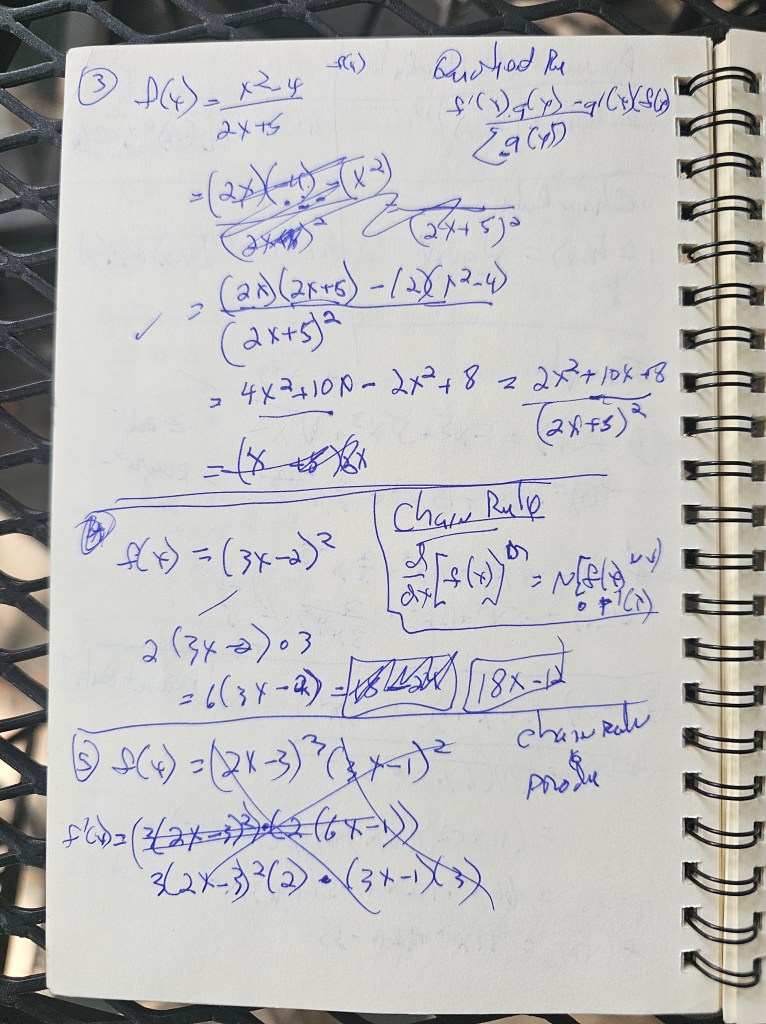 ③ f(x) = (x²-4)/(2x+5)
Quotied Ru
f'(x).g(x) - g'(x)(f(x)) / [g(x)]²
= (2x)(-4) - (x²) / (2x+5)² = / (2x+5)²
= (2x)(2x+5) - (2)(x²-4) / (2x+5)²
= 4x²+10x - 2x²+8 = 2x²+10x+8 / (2x+5)²
= (x +5)(8x
④ f(x) = (3x-2)²
Chain Rule
d/dx [f(x)]ⁿ = N[f(x)
∘ f'(x)
2(3x-2)∘3
= 6(3x-2) = 18x-12
⑤ f(x) = (2x-3)³(3x-1)²
Chain Rule
&
f'(x) = (3(2x-3)²)•(2(6x-1))
3(2x-3)²(2) • (3x-1)(3)